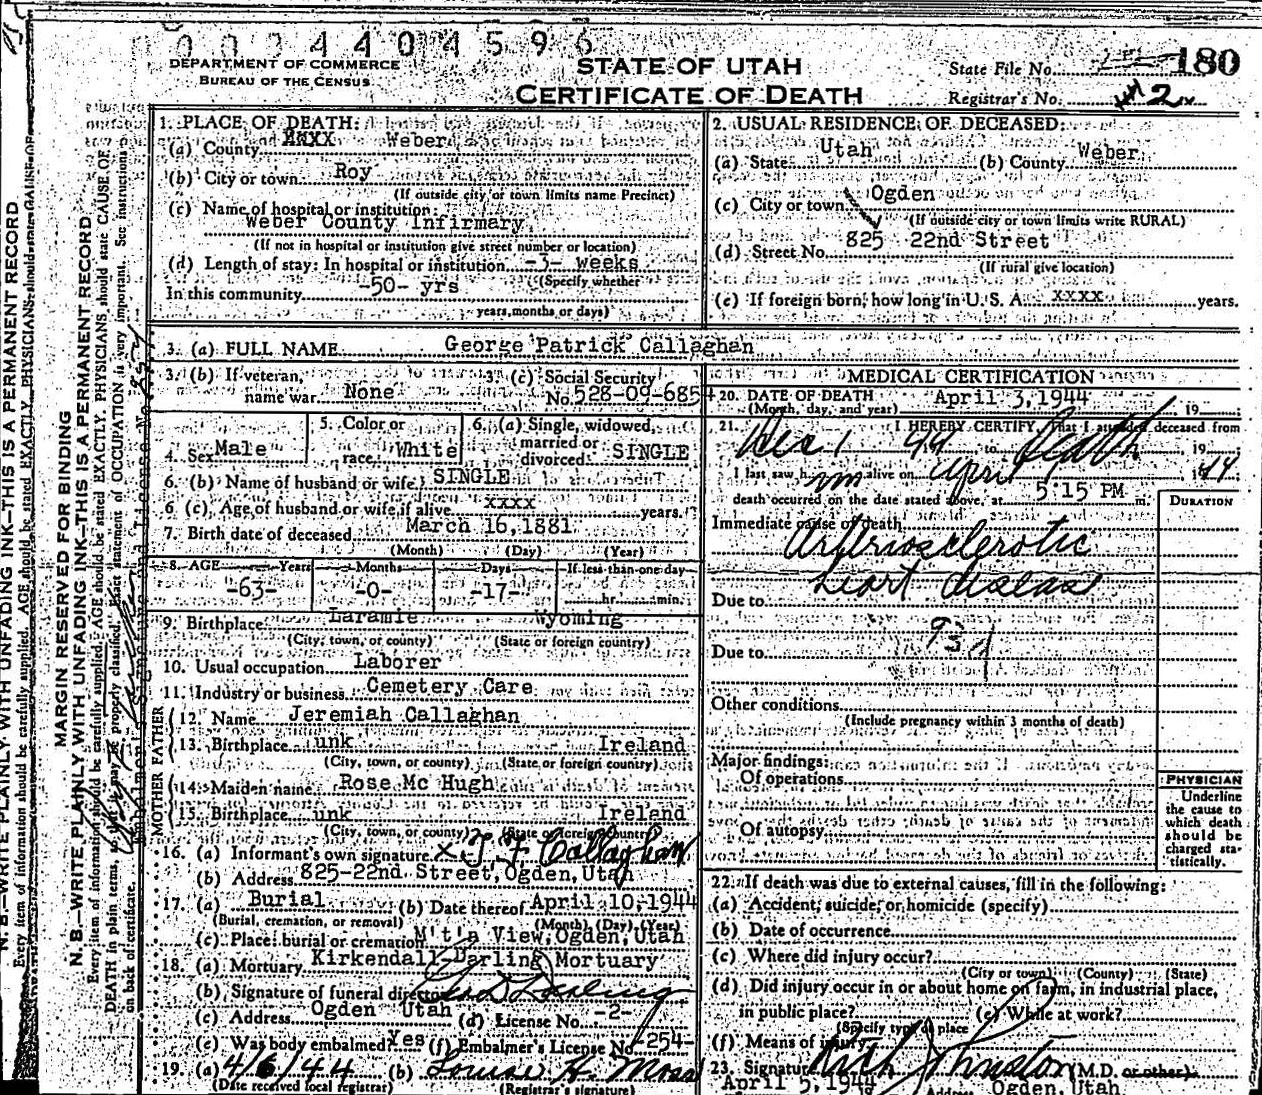 0 0 2 4 4 0 4 5 9 6
DEPARTMENT OF COMMERCE
BUREAU OF THE CENSUS
STATE OF UTAH
CERTIFICATE OF DEATH
State File No. 180
Registrar's No. 2
MARGIN RESERVED FOR BINDING
N. B.—WRITE PLAINLY WITH UNFADING INK—THIS IS A PERMANENT RECORD
Every item of information should be carefully supplied. AGE should be stated EXACTLY. PHYSICIANS should state CAUSE OF
DEATH in plain terms, so that it may be properly classified. Exact statement of OCCUPATION is very important. See instructions
on back of certificate.
1. PLACE OF DEATH:
(a) County Weber
(b) City or town Roy
(If outside city or town limits name Precinct)
(c) Name of hospital or institution:
Weber County Infirmary
(If not in hospital or institution give street number or location)
(d) Length of stay: In hospital or institution -3- weeks
(Specify whether
In this community -50- yrs
years, months or days)
2. USUAL RESIDENCE OF DECEASED:
(a) State Utah (b) County Weber
(c) City or town Ogden
(If outside city or town limits write RURAL)
(d) Street No. 825 22nd Street
(If rural give location)
(e) If foreign born, how long in U. S. A. xxxx years.
3. (a) FULL NAME George Patrick Callaghan
3. (b) If veteran, name war None
3. (c) Social Security No. 528-09-6854
4. Sex Male
5. Color or race White
6. (a) Single, widowed, married or divorced SINGLE
6. (b) Name of husband or wife SINGLE
6 (c). Age of husband or wife if alive xxxx years.
7. Birth date of deceased March 16, 1881
(Month) (Day) (Year)
8. AGE Years Months Days If less than one day
-63- -0- -17- hr. min.
9. Birthplace Laramie Wyoming
(City, town, or county) (State or foreign country)
10. Usual occupation Laborer
11. Industry or business Cemetery Care
FATHER
12. Name Jeremiah Callaghan
13. Birthplace unk Ireland
(City, town, or county) (State or foreign country)
MOTHER
14. Maiden name Rose Mc Hugh
15. Birthplace unk Ireland
(City, town, or county) (State or foreign country)
16. (a) Informant's own signature x T F Callaghan
(b) Address 825-22nd Street, Ogden, Utah
17. (a) Burial (b) Date thereof April 10, 1944
(Burial, cremation, or removal) (Month) (Day) (Year)
(c) Place: burial or cremation M't'n View, Ogden, Utah
18. (a) Mortuary Kirkendall-Darling Mortuary
(b) Signature of funeral director Darling
(c) Address Ogden Utah (d) License No. -2-
(e) Was body embalmed? yes (f) Embalmer's License No. 254-
19. (a) 4/6/44 (b) Louise H. Moss
(Date received local registrar) (Registrar's signature)
MEDICAL CERTIFICATION
20. DATE OF DEATH April 3, 1944
(Month, day, and year) 19
21. I HEREBY CERTIFY, That I attended deceased from
Dec 1 44 to Death, 19
I last saw him alive on April 1944
death occurred on the date stated above, at 5 15 PM m.
DURATION
Immediate cause of death
Arteriosclerotic
heart disease
Due to
Due to
Other conditions
(Include pregnancy within 3 months of death)
Major findings:
Of operations
Of autopsy
PHYSICIAN
Underline
the cause to
which death
should be
charged sta-
tistically.
22. If death was due to external causes, fill in the following:
(a) Accident, suicide, or homicide (specify)
(b) Date of occurrence
(c) Where did injury occur?
(City or town) (County) (State)
(d) Did injury occur in or about home on farm, in industrial place,
in public place? (e) While at work?
(Specify type of place
(f) Means of injury
23. Signature Johnston (M.D. or other)
April 5, 1944 Address Ogden, Utah